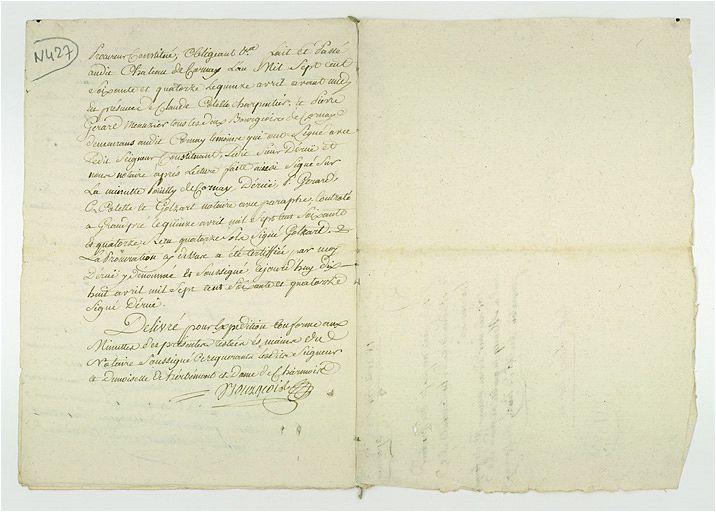 N427
Procureur Constitué, Obligeant &ra. Fait et Passé
audit Chateau de Cornay L'an Mil Sept Cent
Soixante et quatorze Le quinze avril avant midy
en présence de Claude Colette Charpentier, & Pierre
Gerard Menuzier tous les deux Bourgeois de Cornay
demeurans audit Cornay temoins qui ont Signé avec
Ledit Seigneur Constituant, Ledit Sieur Dérué et
nous notaire après Lecture faite aussi Signé Sur
La minutte Pouilly de Cornay Dérué, P. Gerard,
C. Colette & Golzart notaire avec paraphe, Controlé
a Grandpré le quinze avril mil Sept Cent Soixante
et quatorze, Reçu quatorze Sols Signé Golzart. &
La Procuration cy dessus a été Certiffiée par moy
Dérué y denommé et Soussigné, Cejourd'huy dix
huit avril mil Sept Cent Soixante et quatorze
Signé Dérué.
Délivré pour Expédition Conforme aux
Minuttes des présentes restées es mains du
Notaire Soussigné Ce requerants Lesdits Seigneur
et Demoiselle de herbemont et Dame de Charmois
Bourgeois